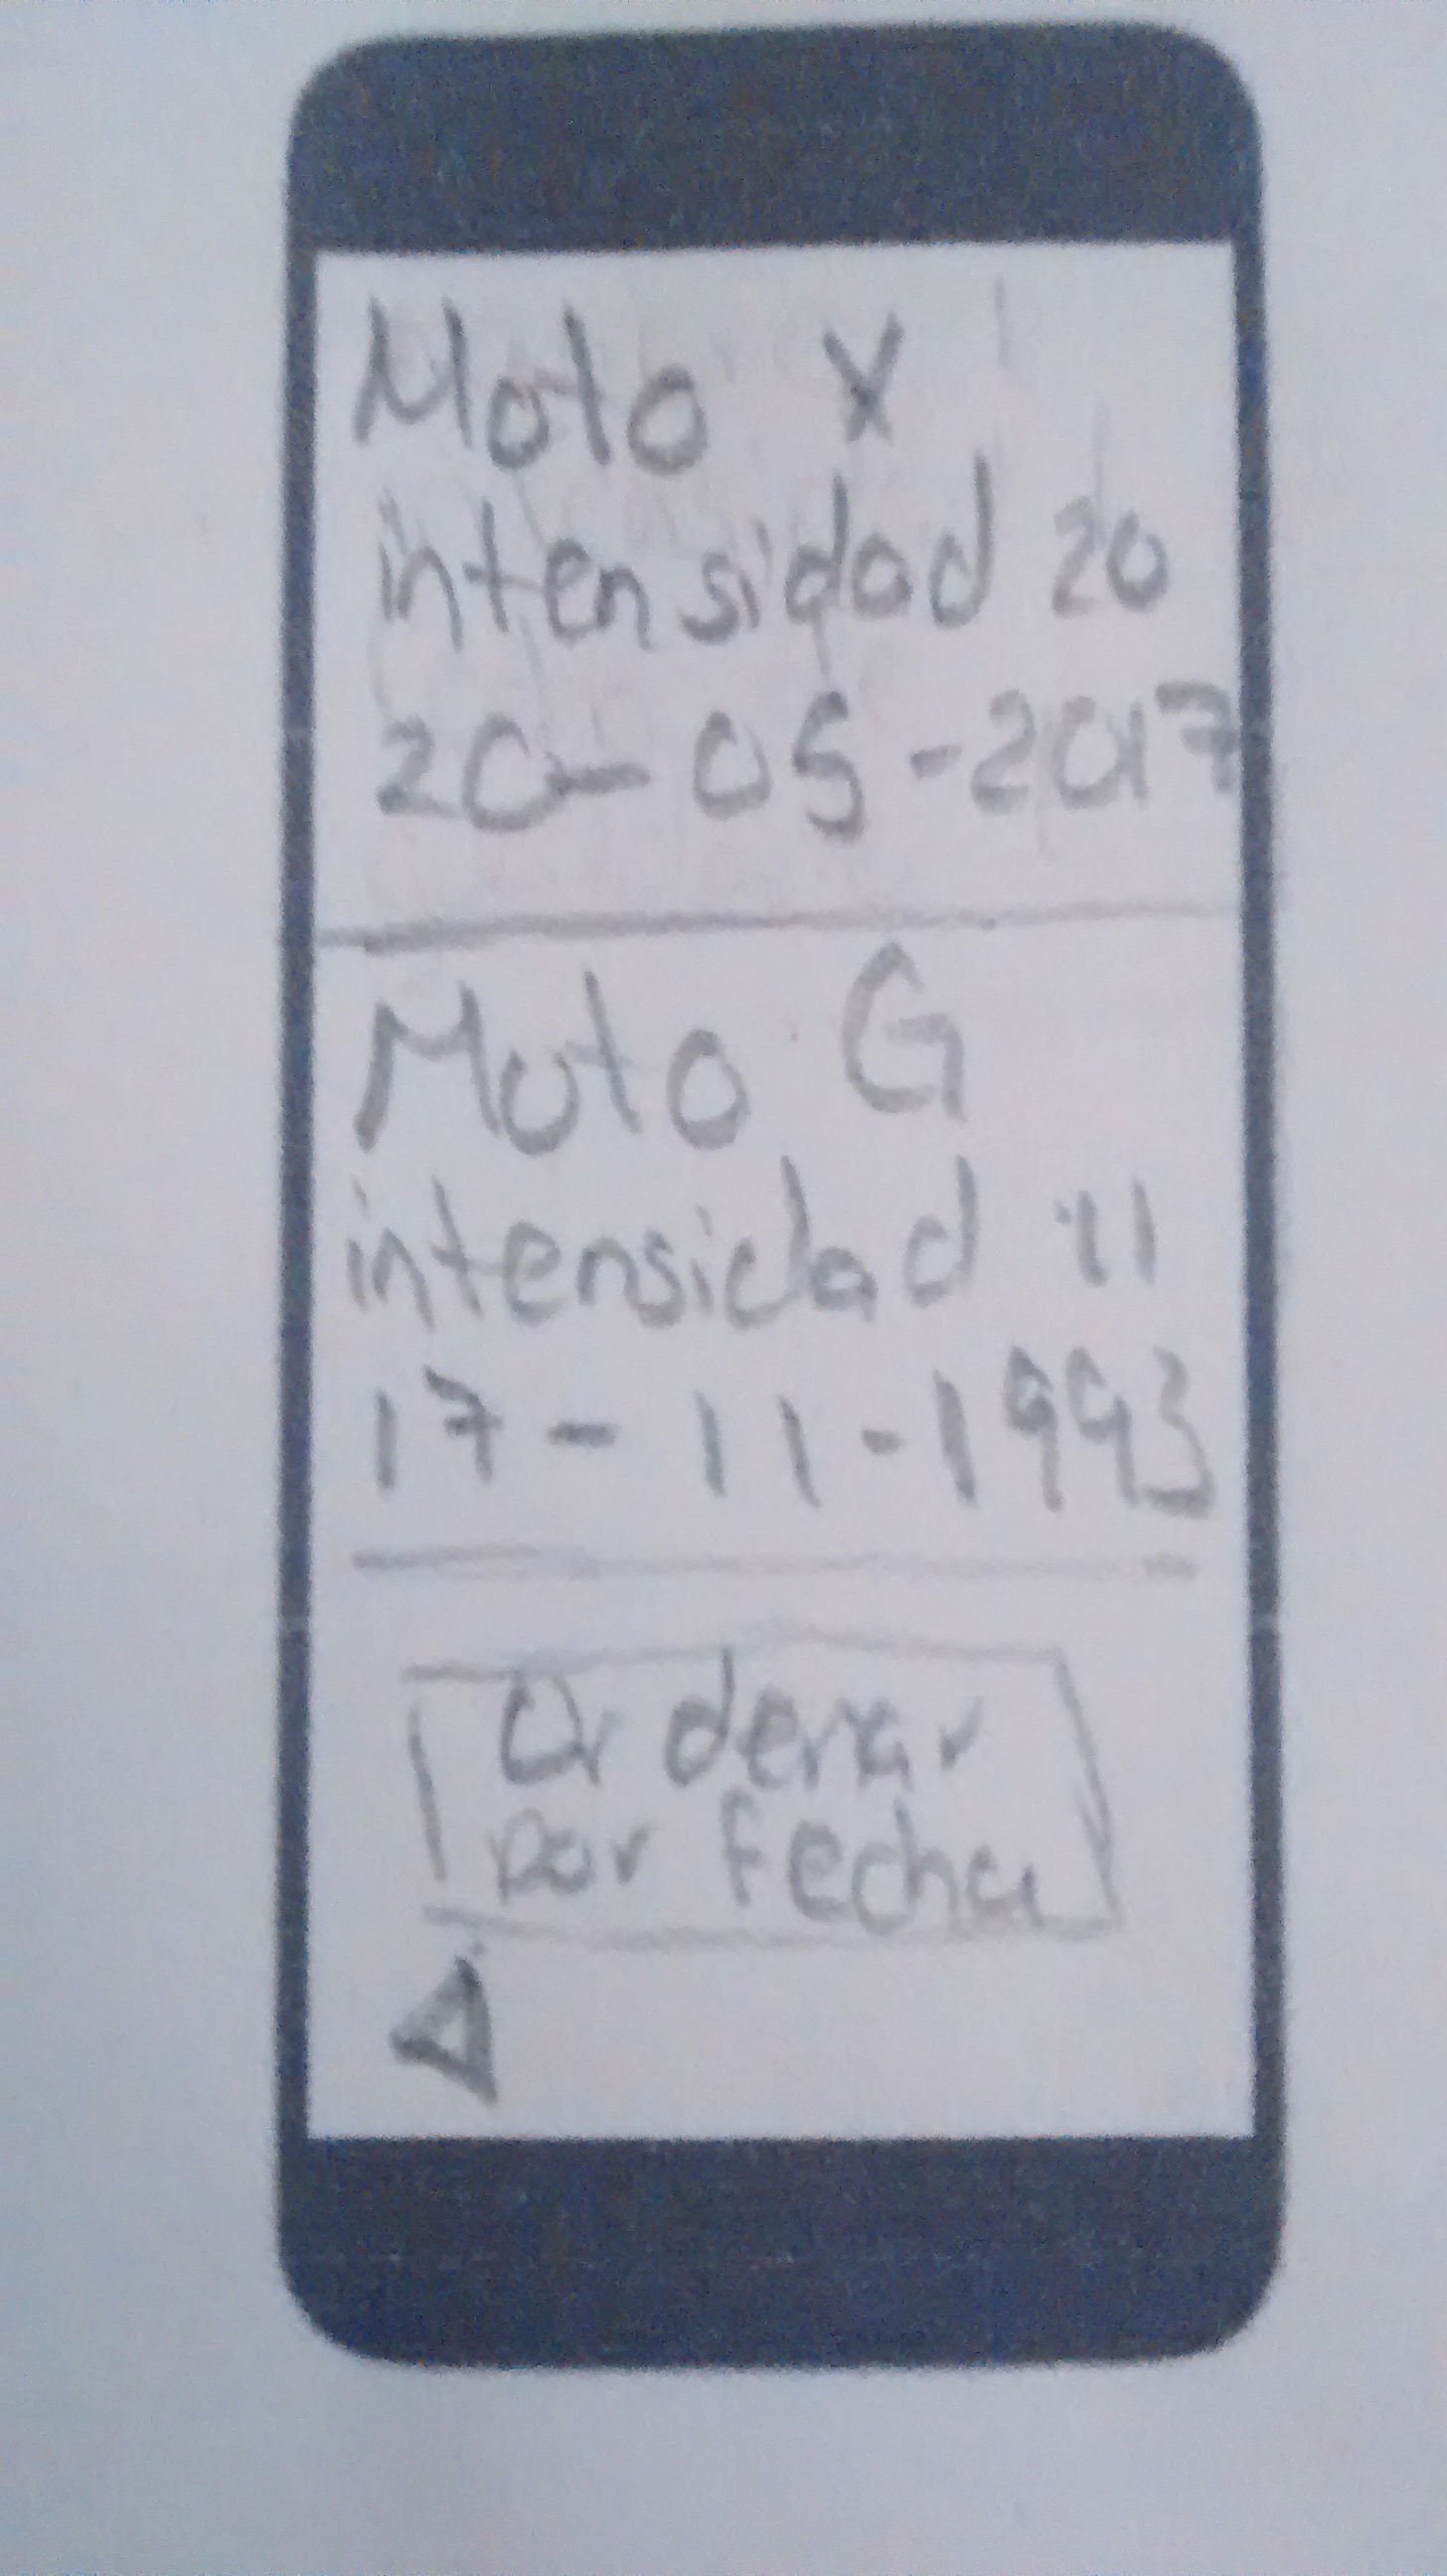 Moto X
intensidad 20
20-05-2017
Moto G
intensidad 11
17-11-1993
Ordenar
por fecha